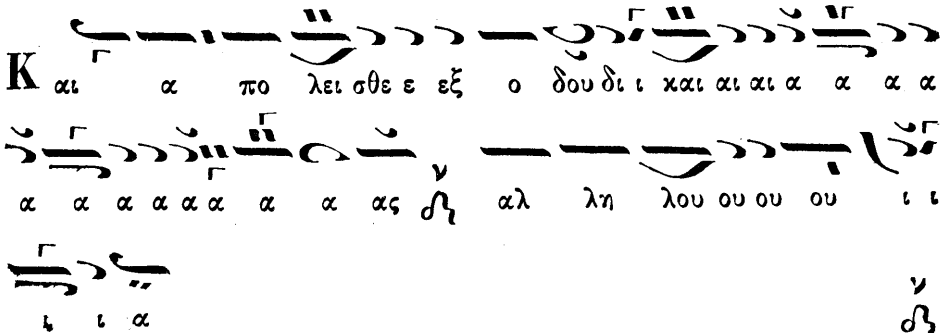 Και α πο λει σθε ε εξ ο δου δι ι και αι αι α α α α
α α α α α α α α ας ν αλ λη λου ου ου ου ι ι
ι ι α ν